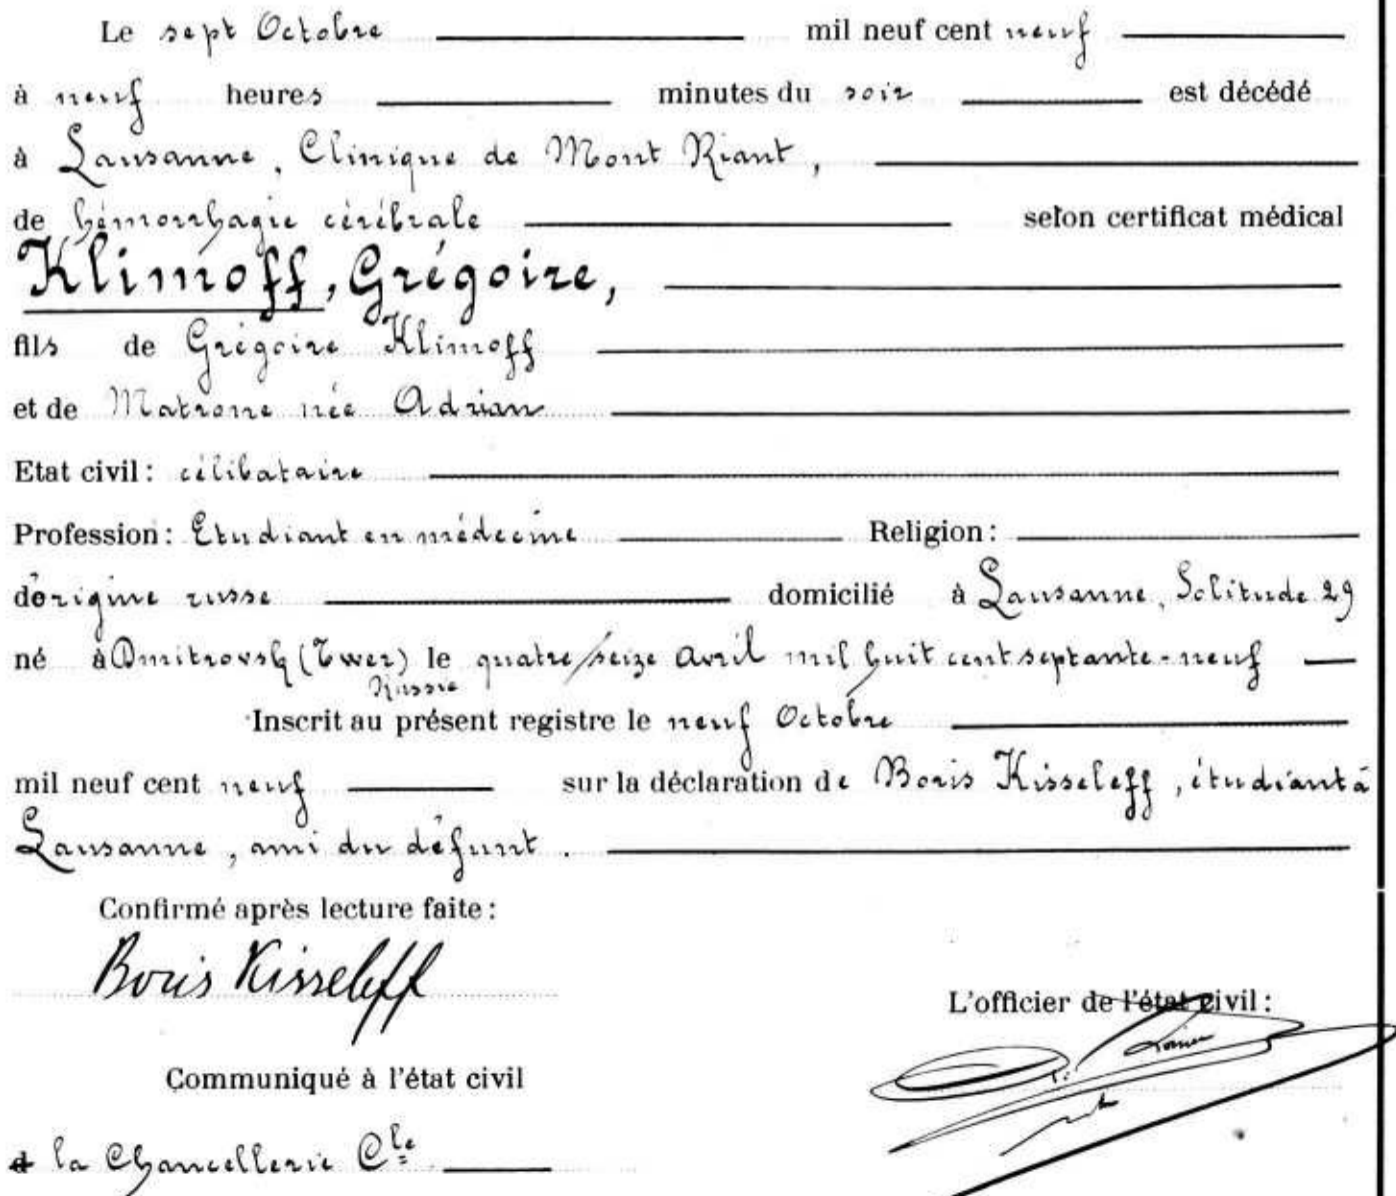 Le sept Octobre mil neuf cent neuf
à neuf heures minutes du soir est décédé
à Lausanne, Clinique de Mont Riant,
de hémorrhagie cérébrale selon certificat médical
Klimoff, Grégoire,
fils de Grégoire Klimoff
et de Matrone née Adrian
Etat civil : célibataire
Profession : Etudiant en médecine Religion :
d'origine russe domicilié à Lausanne, Solitude 29
né à Dmitrovsk (Twer) le quatre/seize Avril mil huit cent septante-neuf
Russie
Inscrit au présent registre le neuf Octobre
mil neuf cent neuf sur la déclaration de Boris Kisseleff, étudiant à
Lausanne, ami du défunt.
Confirmé après lecture faite :
Boris Kisseleff
L'officier de l'état civil :
Communiqué à l'état civil
à la Chancellerie Cle